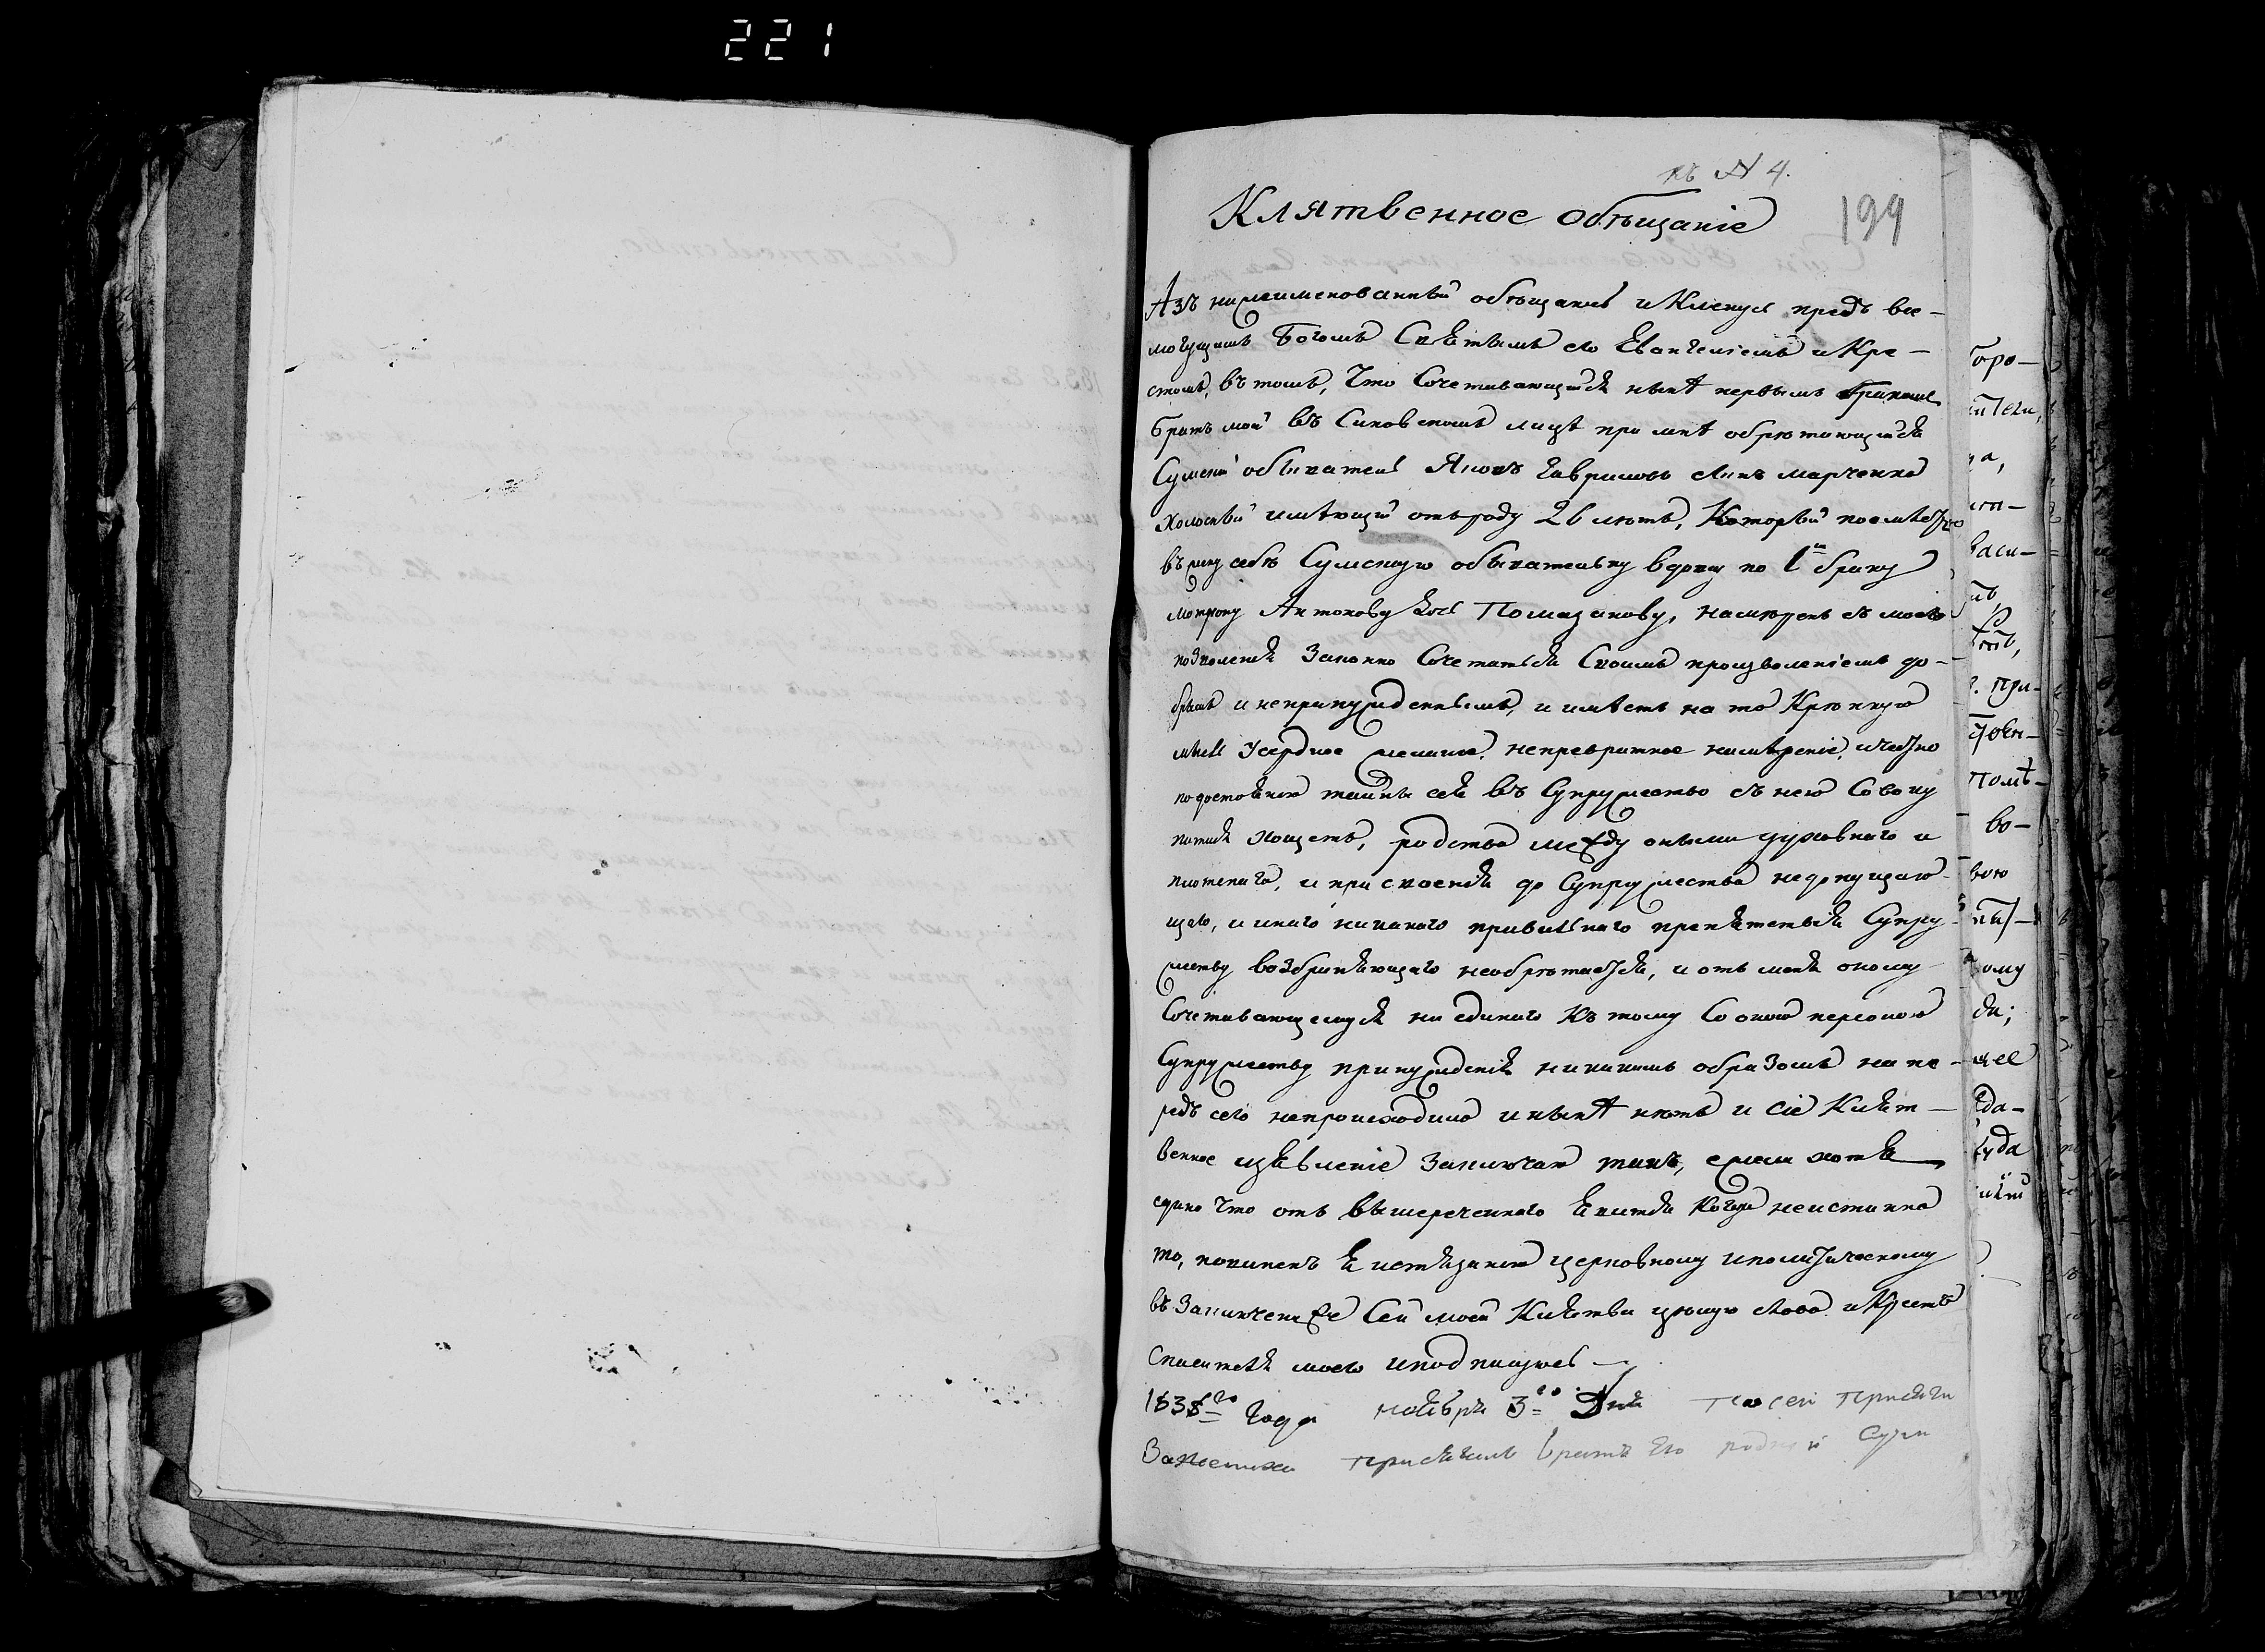 221
къ № 4.
Клятвенное обѣщаніе 199
Азъ нижеименованный обѣщаюсь и Кленусь предъ все-
могущимъ Богомъ Святымъ его Евангеліемъ и Кре-
стомъ, въ томъ, Что Сочетавающійся нынѣ первымъ бракомъ
братъ мой въ Сиковскомъ лицѣ при мнѣ обрѣтающійся
Сумскій обыватель Яковъ Гавриловъ сынъ марченко
холостый имѣющій отъ роду 26 лѣтъ, Который поемлетъ
въ жену себѣ Сумскую обывательку вдову по 1м браку
мотрону Антонову дочь Помазанову, намѣренъ съ моего
позволенія Законно Сочетатися Своимъ произволеніемъ до-
брымъ и непринужденнымъ, и имѣетъ на то Крѣпкую
мысль Усердное желаніе, непревратное намѣреніе, и честно
по достоянію тайны сея въ Супружество съ нею Совоку
питися хощетъ, родства между оными духовнаго и
плотскаго, и присвоенія до Супружества недопущаю-
щаго, и инаго никакого правильнаго препятствія Супру-
жеству возбраняющаго необрѣтается, и отъ меня оному
Сочетавающемуся ни единаго Къ тому Со оною персоною
Супружеству принужденія никакимъ образомъ на пе-
редъ сего непроисходило и нынѣ нѣтъ и сіе Клят-
венное изъявленіе Заключаю такъ, ежели хотя
едино Что отъ вышереченнаго Явится Когда неистинно
то, повиненъ Я истязанію церковному и политическому
въ Заключеніе Сей моей Клятвы цѣлую слова и Крестъ
Спасителя моего и подпишусь
1838го Года ноября 3го Дня По сей присяги
Заженика присягалъ братъ Его родный
Горо-
ители,
васи-
при-
помѣ-
во-
вою
ому
ся;
щее
да-
куда